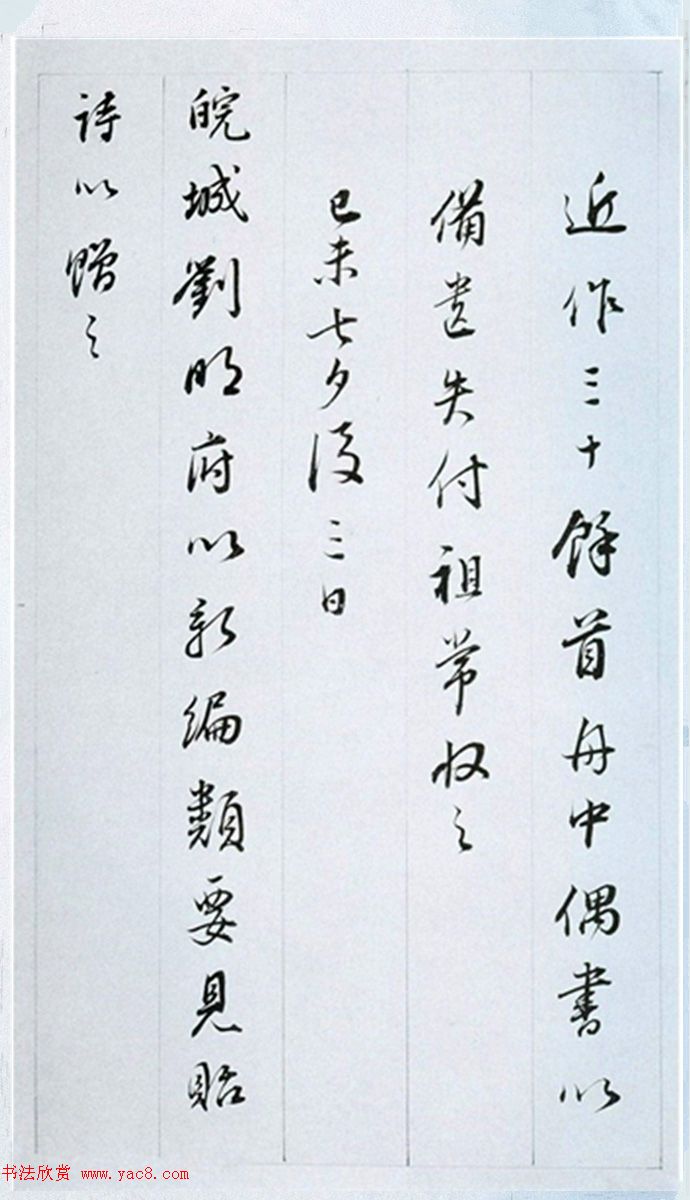 近作三十餘首舟中偶書以
備遺失付祖常收之
已未七夕後三日
皖城劉明府以新編類要見貽
詩以贈之
书法欣赏 www.yac8.com